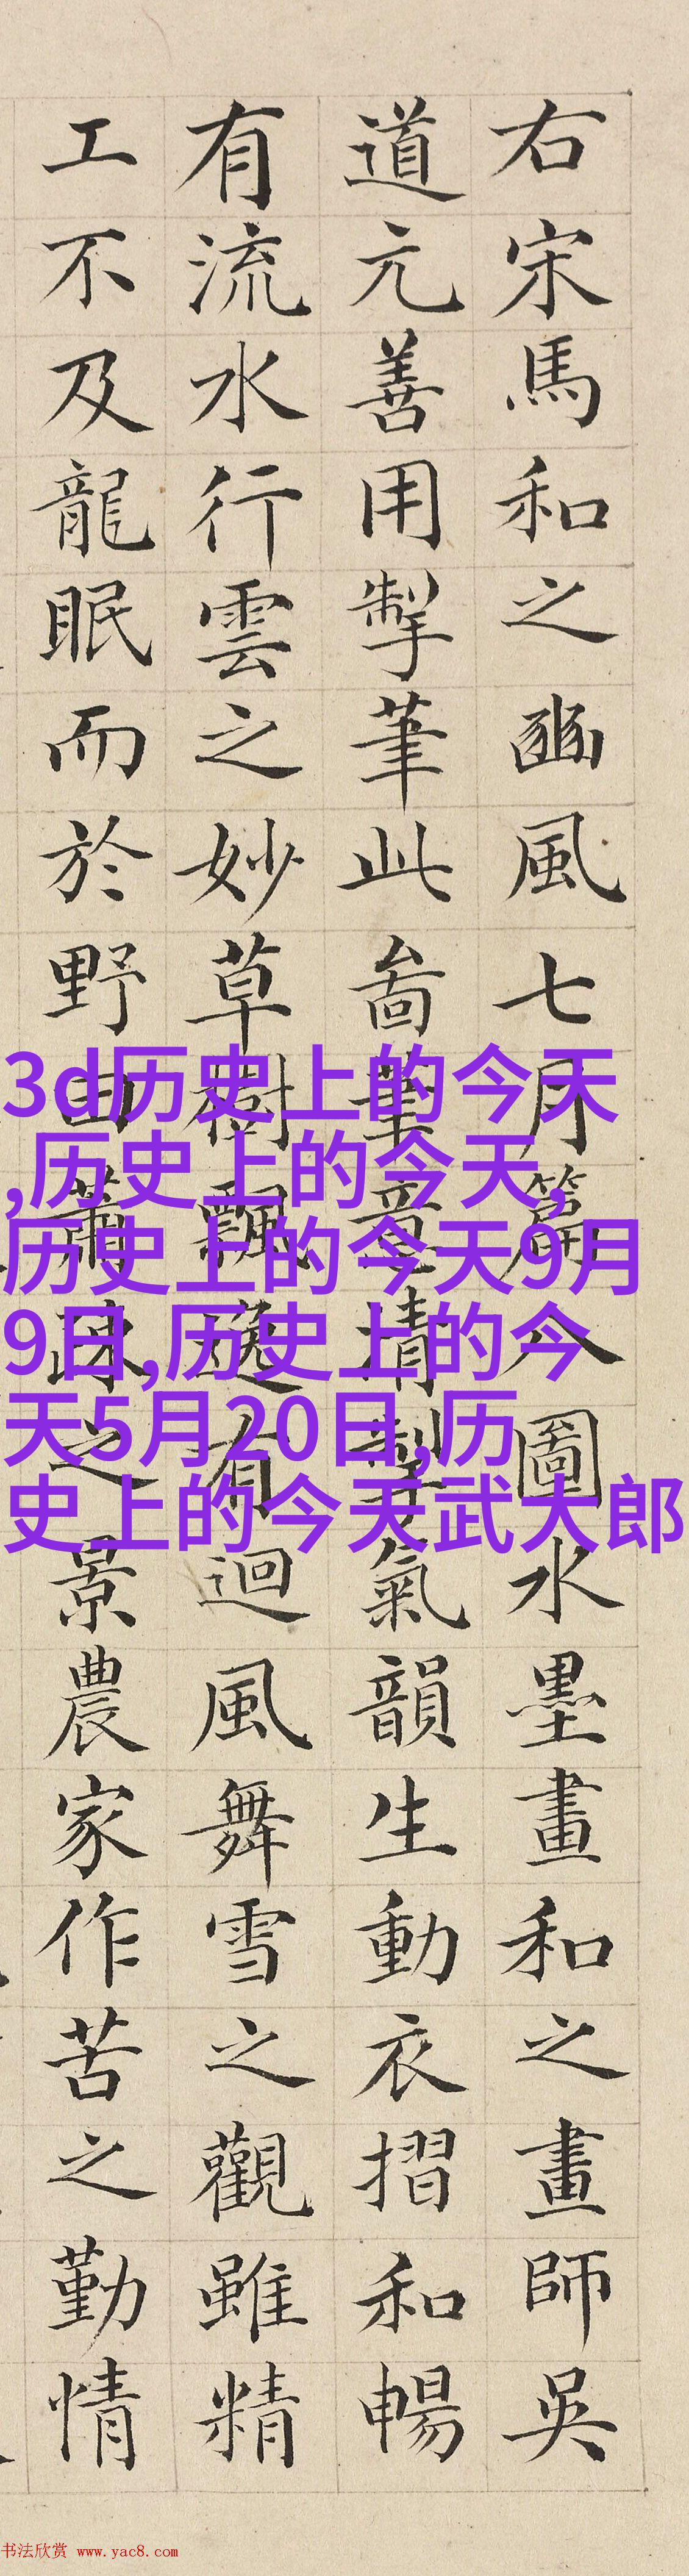 右宋馬和之豳風七月篇八圖水墨畫和之畫師吳
道元善用掣筆此啚筆意精掣氣韻生動衣摺和暢
有流水行雲之妙草樹飄逸有迴風舞雪之觀雖精
工不及龍眠而於野田蕭疎之景農家作苦之勤情
3d历史上的今天
,历史上的今天,
历史上的今天9月
9日,历史上的今
天5月20日,历
史上的今天武大郎
书法欣赏 www.yac8.com